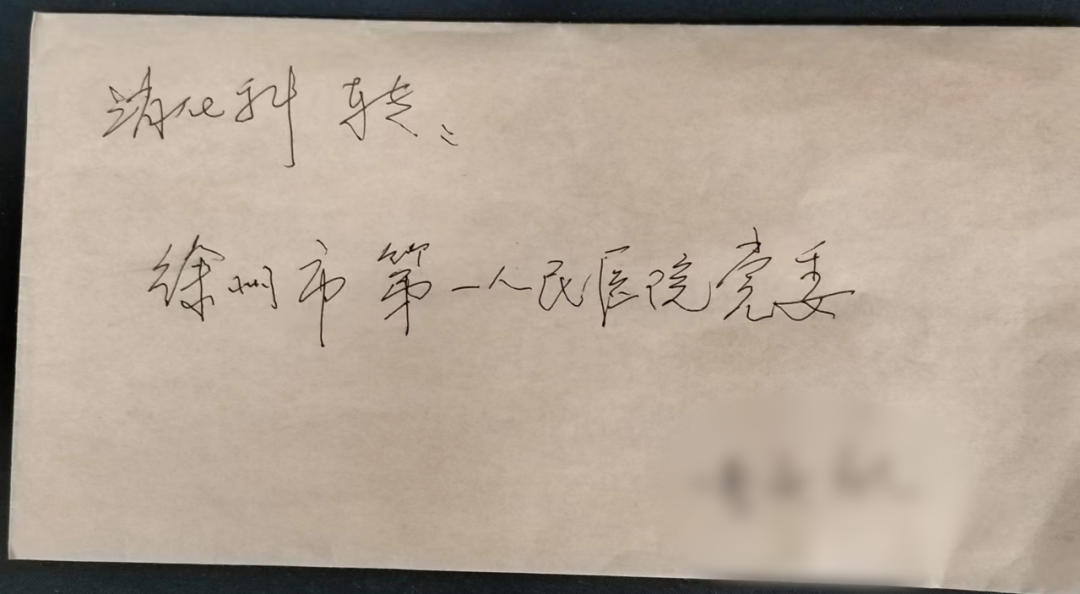 消化科 转：
徐州市第一人民医院党委